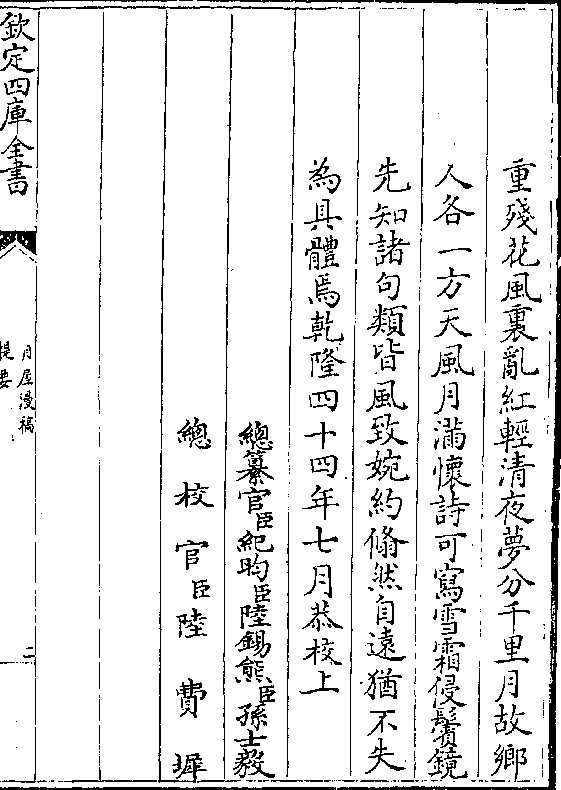 重殘花風裏亂紅輕清夜夢分千里月故鄉
人各一方天風月滿懷詩可寫雪霜侵鬢鏡
先知諸句類皆風致婉約翛然自遠猶不失
為具體焉乾隆四十四年七月恭校上
總纂官臣紀昀臣陸錫熊臣孫士毅
總校官臣陸費墀
欽定四庫全書
月屋漫稿
提要
二